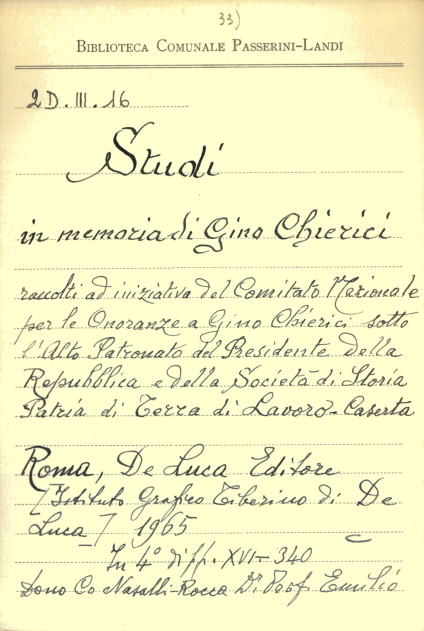 33)
BIBLIOTECA COMUNALE PASSERINI-LANDI
2D. III. 16
Studi
in memoria di Gino Chierici
raccolti ad iniziativa del Comitato Nazionale
per le Onoranze a Gino Chierici sotto
l'Alto Patronato del Presidente della
Repubblica e della Società di Storia
Patria di Terra di Lavoro - Caserta
Roma, De Luca Editore
[Istituto Grafico Tiberino di De
Luca] 1965
In 4° di pp. XVI-340
Dono Co Nasalli-Rocca Dr. Prof. Emilio